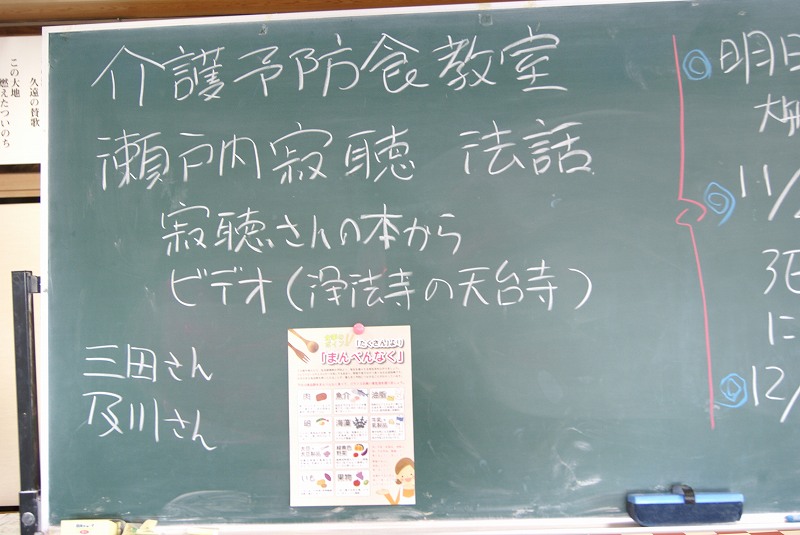 介護予防食教室
瀬戸内寂聴 法話
寂聴さんの本から
ビデオ(浄法寺の天台寺)
三田さん
及川さん
◎明日
◎11/
3日
に
◎12/
久遠の賛歌
この大地
燃えたついのち
「たくさんより」
「まんべんなく」
肉
魚介
油脂
卵
海藻
牛乳・乳製品
大豆・大豆製品
緑黄色野菜
いも
果物